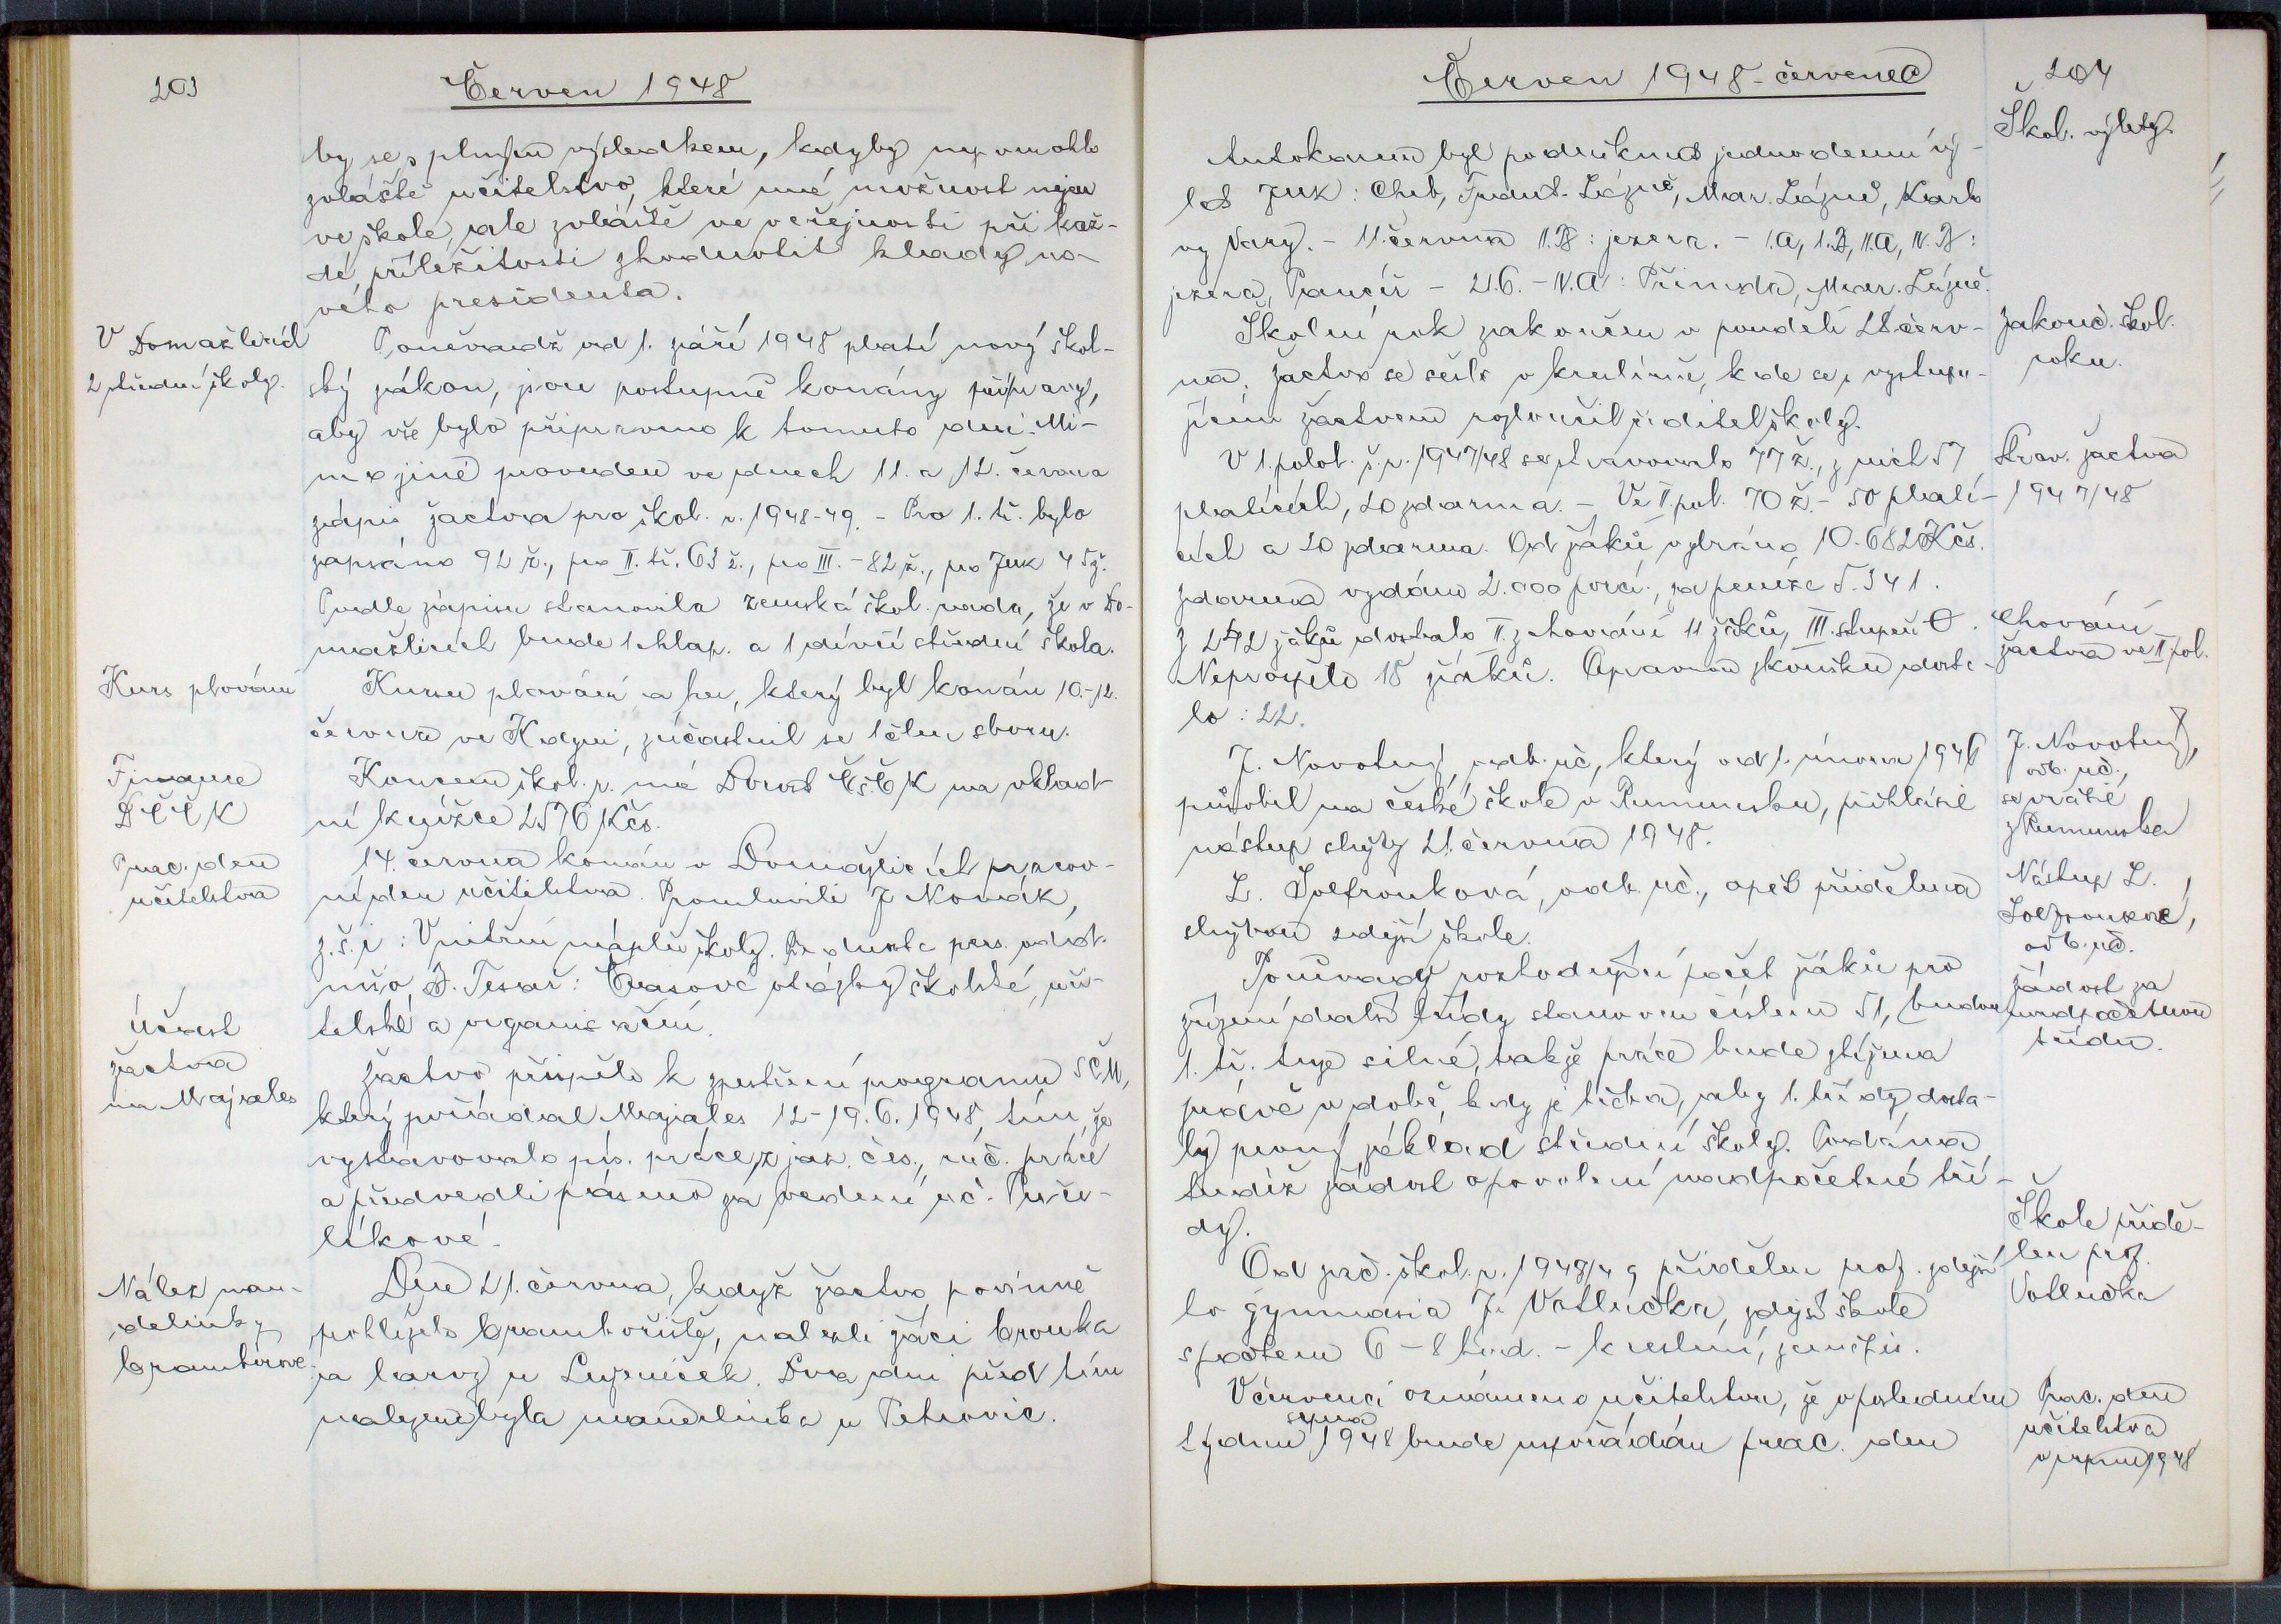 203
Červen 1948
by se s plným výsledkem, kdyby napomohlo
zvláště učitelstvo, které má možnost nejen
ve škole, ale zvláště ve veřejnosti při kaž-
dé příležitosti zhodnotit klady no-
vého presidenta.
V Domažlicích
2 střední školy.
Poněvadž od 1. září 1948 platí nový škol-
ský zákon, jsou postupně konány přípravy,
aby vše bylo připraveno k tomuto dni. Mi-
mo jiné proveden ve dnech 11. a 12. června
zápis žactva pro škol. r. 1948-49. - Pro 1. tř. bylo
zapsáno 92 ž., pro II. tř. 63 ž., pro III. - 82 ž., pro JUK 45 ž.
Podle zápisu stanovila zemská škol. rada, že v Do-
mažlicích bude 1 chlap. a 1 dívčí střední škola.
Kurs plování
Kursu plování a her, který byl konán 10.-12.
června ve Kdyni, zúčastnil se 1 člen sboru.
Finance
DČČK
Koncem škol. r. má Dorost Čs.ČK na vklad-
ní knížce 2576 Kčs.
Prac. den
učitelstva
14. června konán v Domažlicích pracov-
ní den učitelstva. Promluvili J. Novák,
z.š.i: Vnitřní náplň školy. Předseda pers. odd.
Tesař: Časové otázky školské, uči-
telské a organisační.
Účast
žactva
na Majales
Žactvo přispělo k zpestření programu SČM,
který pořádal Majales 12-19.6.1948, tím, že
vystavovalo pís. práce z jaz. čes., ruč. práce
a předvedli pásmo za vedení uč.
líkové.
Nález man-
delinky
bramborové
Dne 21. června, když žactvo povinně
prohlíželo bramboriště, nalezli žáci brouka
a larvy u Luženiček. Dva dni před tím
nalezena byla mandelinka u Petrovic.
Červen 1948 - červenec
204
Škol. výlety.
Autokarem byl podniknut jednodenní vý-
let JUK: Cheb, Frant. Lázně, Mar. Lázně, Karlo
vy Vary. - 11. června II.B: jezera. - I.A, I.B, II.A, IV.B:
jezera, Pancíř - 21.6. - IV.A: Přimda, Mar. Lázně.
Zakonč. škol.
roku.
Školní rok zakončen v pondělí 28. červ-
na. Žactvo se sešlo v kreslírně, kde se s vystupu-
jícím žactvem rozloučil ředitel školy.
Strav. žactva
1947/48
V 1. polol. š.r. 1947/48 se stravovalo 77 ž., z nich 57
platících, 20 zdarma. - Ve II. pol. 70 ž. - 50 platí-
cích a 20 zdarma. Od žáků vybráno 10.682 Kčs.
Zdarma vydáno 2.000 porcí, za peníze 5.341.
Chování
žactva ve II. pol.
Z 242 žáků dostalo II. z chování 11 žáků, III. stupeň 0.
Neprospělo 18 žáků. Opravnou zkoušku dosta-
lo: 22.
J. Novotný,
odb. uč.,
se vrátil
z Rumunska
J. Novotný, odb. uč., který od 1. února 1946
působil na české škole v Rumunsku, přihlásil
nástup služby 21. června 1948.
Nástup L.
odb. uč.
L. odb. uč., opět přidělena
službou zdejší škole.
Žádost za
nadpočetnou
třídu.
Poněvadž rozhodující počet žáků pro
zřízení další třídy stanoven číslem 51, budou
1. tř. tuze silné, takže práce bude ztížena
právě v době, kdy je třeba, aby 1. třídy dosta-
ly pevný základ střední školy. Podána
tudíž žádost o povolení nadpočetné tří-
dy.
Škole přidě-
len prof.
Votlučka
Od zač. škol. r. 1948/49 přidělen prof. zdejší-
ho gymnasia J. Votlučka, zdejší škole
s počtem 6-8 hod. - kreslení, zeměpis.
Prac. den
učitelstva
v srpnu 1948
V červenci oznámeno učitelstvu, že v posledním
týdnu srpna 1948 bude uspořádán prac. den